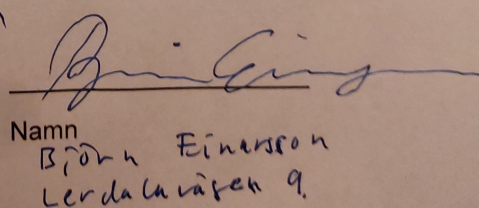 Björn Einarsson
Namn
Björn Einarsson
Lerdalavägen 9.